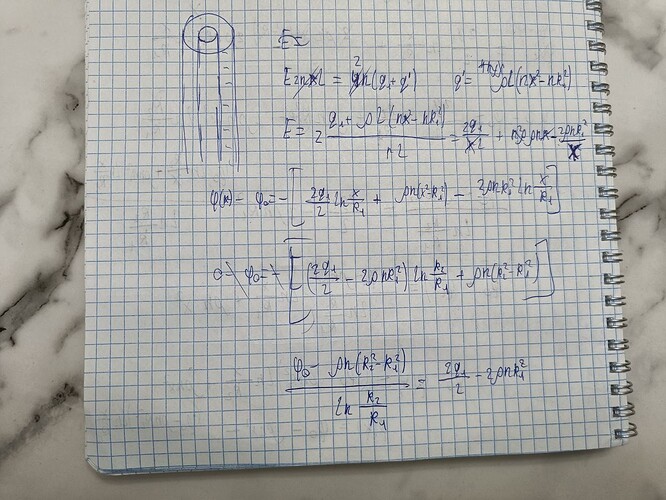 E=
E2πxl = 4π(q₁+q') q'= ρl(πx²-πR₁²)
E= 2 (q₁+ρl(πx²-πR₁²))/(r l) = 2q₁/(xl) + 2ρπx - 2ρπR₁²/x
φ(x) - φ₀ = -[2q₁/l ln x/R₁ + ρπ(x²-R₁²) - 2ρπR₁² ln x/R₁]
0 - φ₀ = -[(2q₁/l - 2ρπR₁²) ln R₂/R₁ + ρπ(R₂²-R₁²)]
(φ₀ - ρπ(R₂²-R₁²))/(ln R₂/R₁) = 2q₁/l - 2ρπR₁²